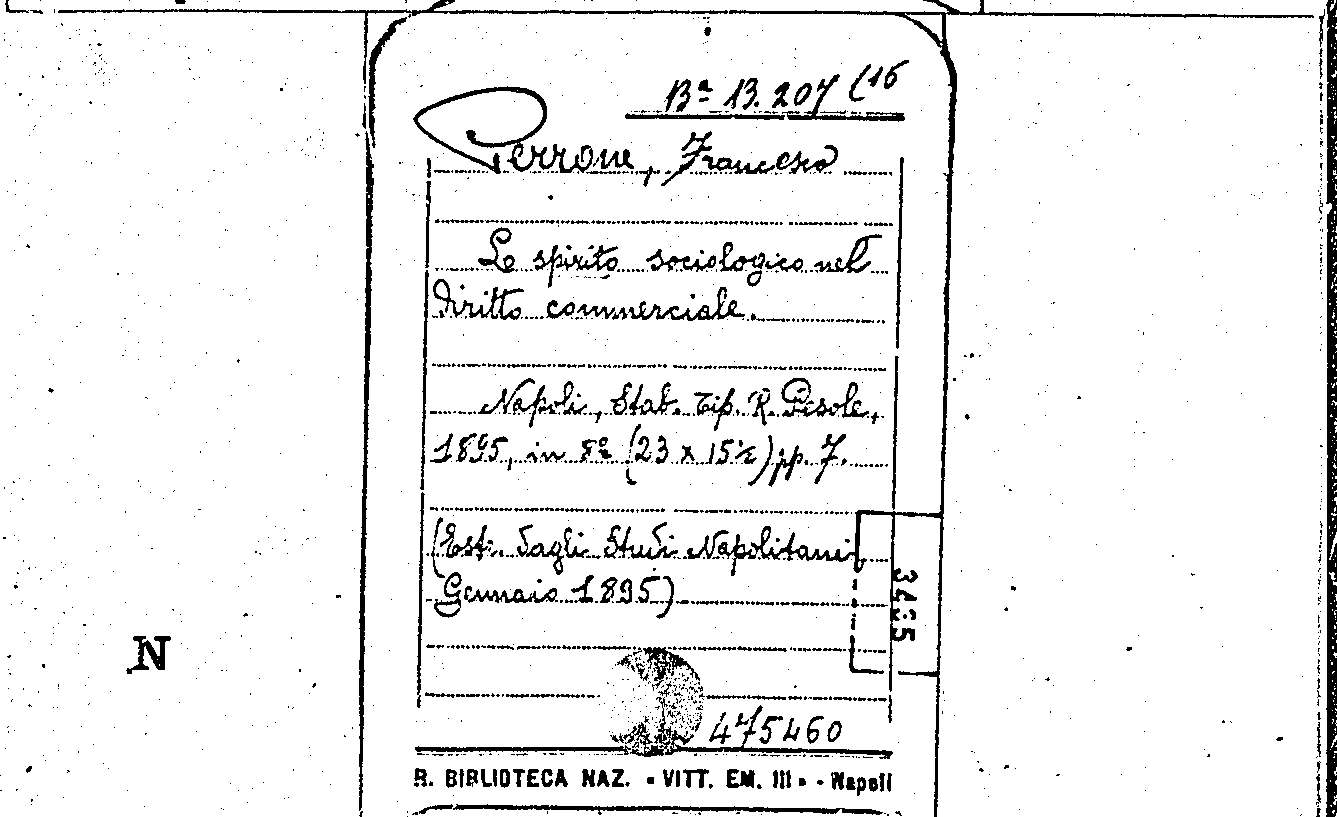 Bª 13. 207 (16
Perrone, Francesco
Lo spirito sociologico nel
diritto commerciale.
Napoli, Stab. Tip. R. Pesole,
1895, in 8º (23 x 15½) pp. 7.
(Estr. dagli Studi Napolitani
Gennaio 1895)
34
5
N
475460
R. BIBLIOTECA NAZ. • VITT. EM. III • - Napoli